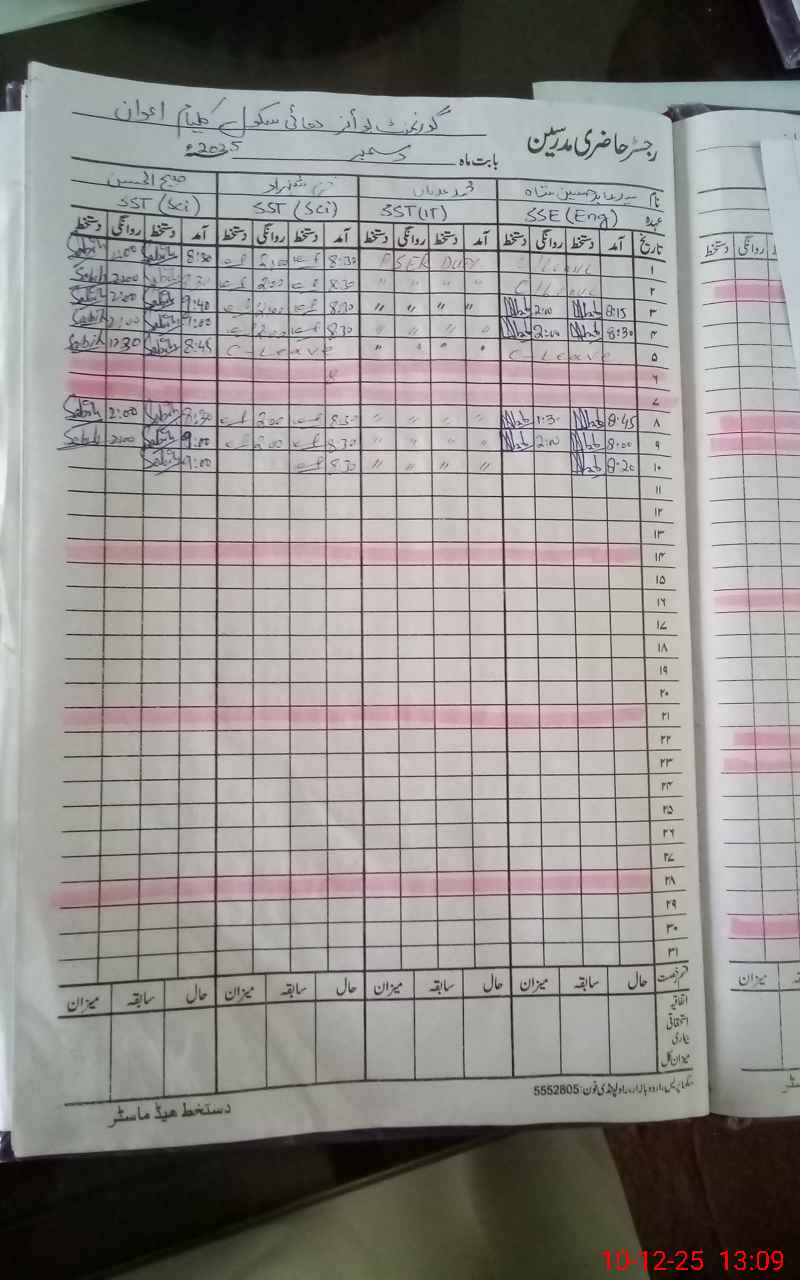 رجسٹر حاضری مدرسین
گورنمنٹ بوائز ہائی سکول کلیام اعوان
بابت ماہ دسمبر 2025ء
نام سید عابد حسین شاہ محمد عدنان صبیح الحسن
عہدہ SSE (Eng) SST (IT) SST (Sci) SST (Sci)
تاریخ آمد دستخط روانگی دستخط آمد دستخط روانگی دستخط آمد دستخط روانگی دستخط آمد دستخط روانگی دستخط
۱ 8:30 2:00 8:30 Sabih
۲ C/Leave " " " " 8:30 2:00 Sabih 2:00 Sabih
۳ 8:15 2:00 " " " " 8:30 2:00 9:40 Sabih 2:00 Sabih
۴ 8:30 2:00 " " " " 8:30 2:00 9:00 Sabih 2:00 Sabih
۵ C-Leave " " " " C-Leave 8:45 Sabih 12:30 Sabih
۶
۷
۸ 8:45 1:30 " " " " 8:30 2:00 8:30 Sabih 2:00 Sabih
۹ 8:00 2:00 " " " " 8:30 2:00 9:00 Sabih 2:00 Sabih
۱۰ 8:20 " " " " 8:30 9:00 Sabih
۱۱
۱۲
۱۳
۱۴
۱۵
۱۶
۱۷
۱۸
۱۹
۲۰
۲۱
۲۲
۲۳
۲۴
۲۵
۲۶
۲۷
۲۸
۲۹
۳۰
۳۱
قسم رخصت حال سابقہ میزان حال سابقہ میزان حال سابقہ میزان حال سابقہ میزان
اتفاقیہ
استحقاقی
بیماری
میزان کل
پریس، اردو بازار، راولپنڈی فون: 5552805
دستخط ہیڈ ماسٹر
دستخط روانگی
میزان
10-12-25 13:09